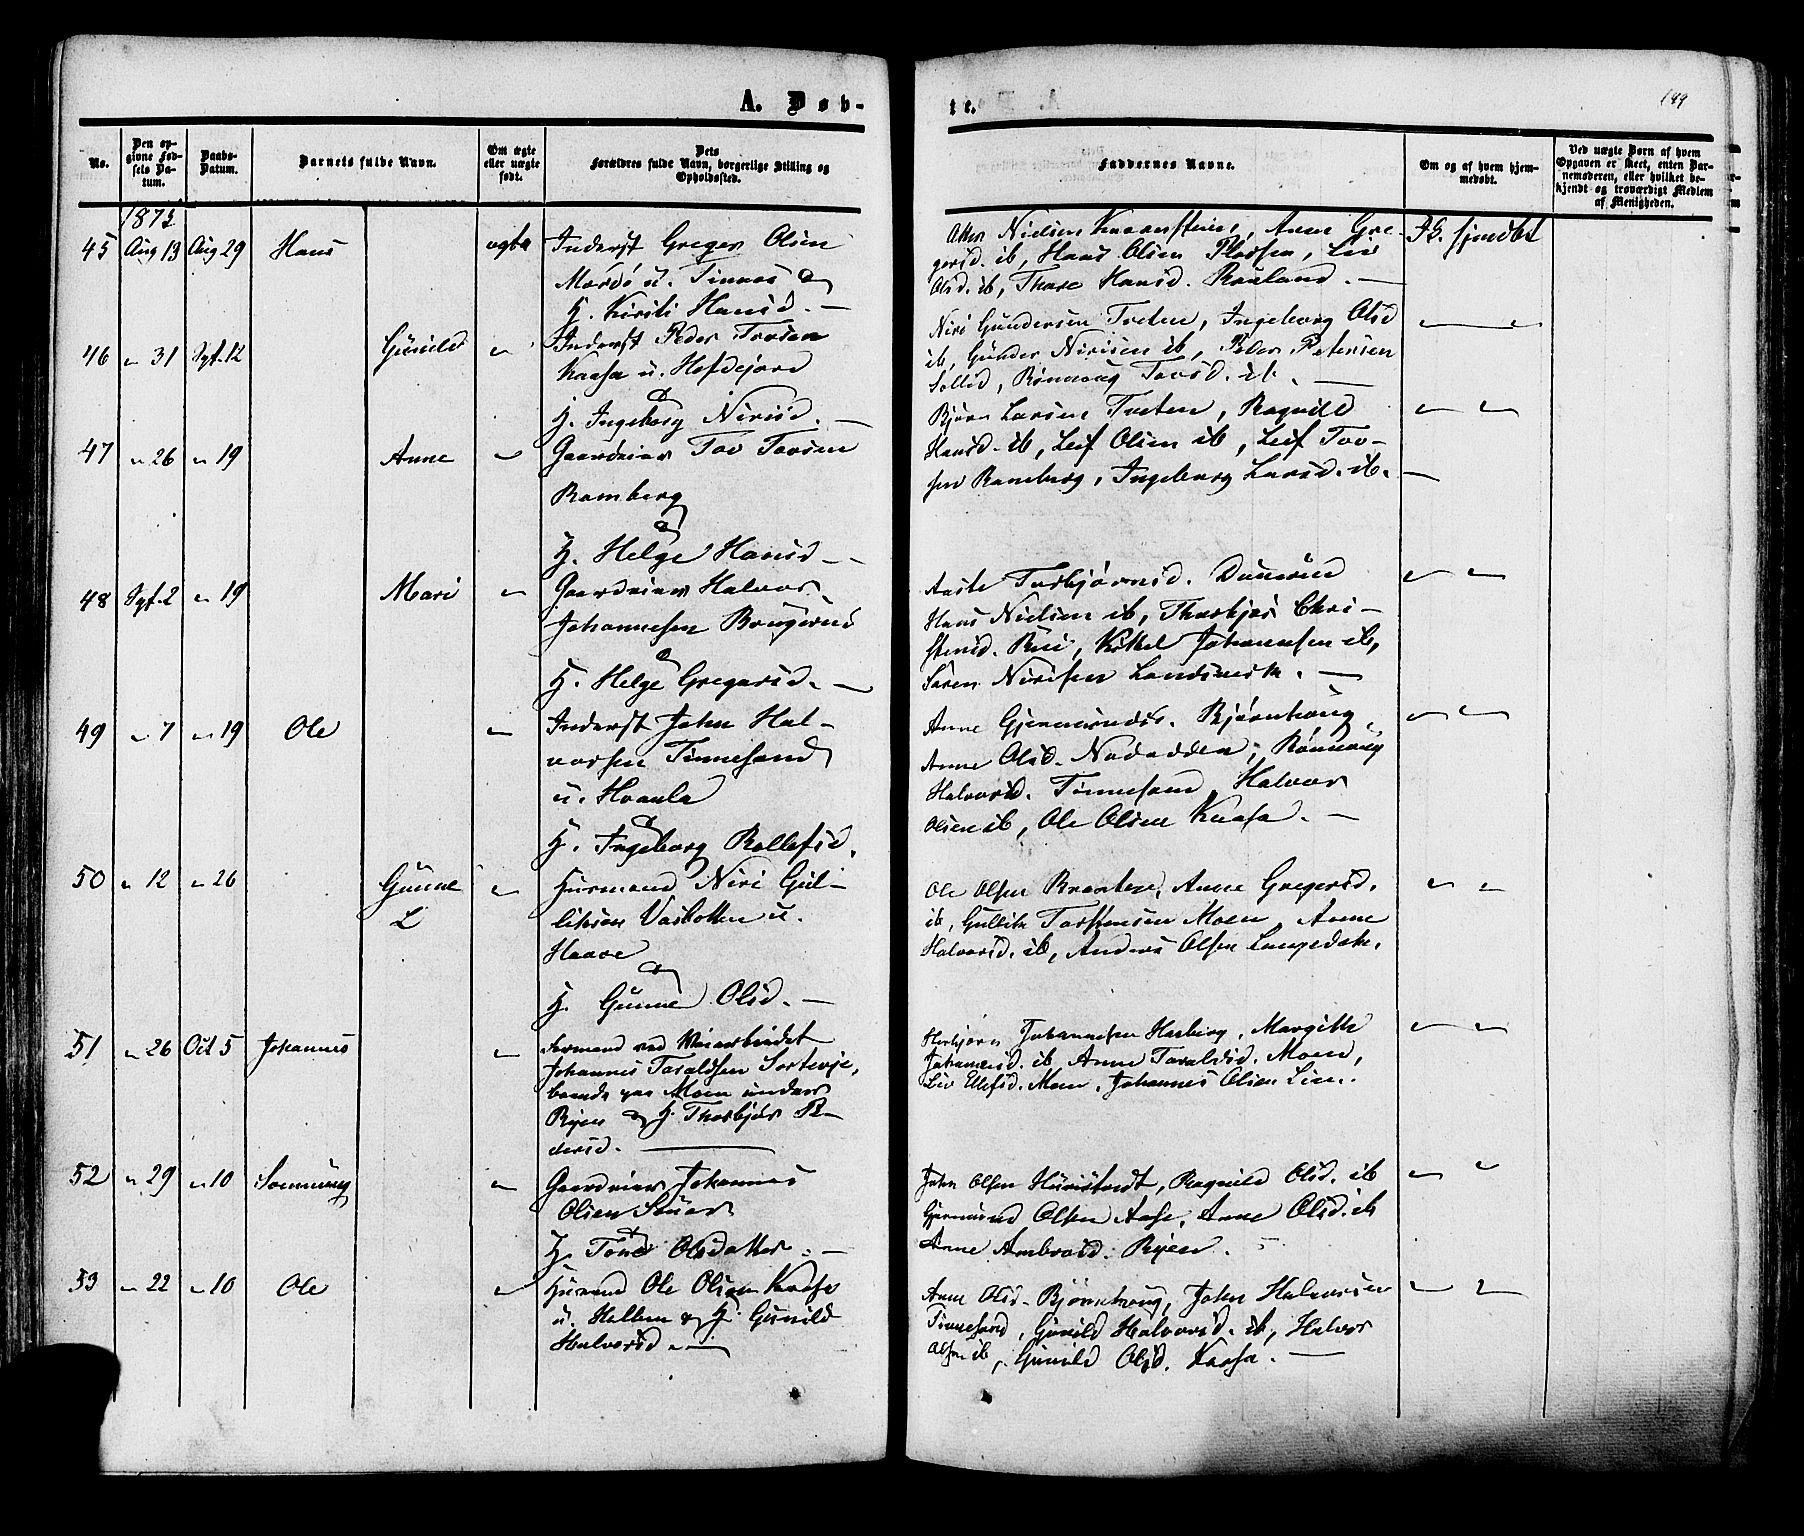 A. Døb-
te.
149
No.
Den op-
givne Fød-
sels Da-
tum.
Daabs-
Datum.
Barnets fulde Navn.
Om ægte
eller uægte
født.
Dets
Forældres fulde Navn, borgerlige Stilling og
Opholdssted.
Faddernes Navne.
Om og af hvem hjem-
medøbt.
Ved uægte Børn af hvem
Opgaven er skeet, enten Bar-
nemoderen, eller hvilket be-
kjendt og troværdigt Medlem
af Menigheden.
1873
45 Aug 13 Aug 29 Hans ægte Inderst Greger Olsen
u. Tinnes &
H. Kirsti Hansd. —
Nielsen Anne Gre-
gersd. ib, Hans Olsen Liv
Olsd. ib, Thore Hansd. Rauland. —
46 " 31 Sept. 12 Gunild " Inderst Peder Tovsen
Kaasa u. Hofdejord
&
H. Ingeborg Nirisd. —
Niri Gundersen Tveten, Ingeborg Olsd
ib, Gunder Nirisen ib, Peder Petersen
Sollid, Rønnaug Tovsd. ib. —
47 " 26 " 19 Anne " Gaardeier Tov Tovsen
Ramberg
&
H. Helge Hansd —
Bjørn Larsen Tveten, Ragnild
Hansd. ib, Leif Olsen ib, Leif Tov-
sen Ramberg, Ingeborg Larsd. ib. —
48 Sept. 2 " 19 Mari " Gaardeier Halvor
Johannesen
&
H. Helge Gregersd. —
Aaste Torbjørnsd.
Hans Nielsen ib, Thorbjør Chri-
stensd. Rui, Kittel Johannesen ib,
Søren Nirisen Landsverk. —
49 " 7 " 19 Ole " Inderst John Hal-
vorsen Tinnesand
u. Hvaala
&
H. Ingeborg Rollefsd.
Anne Gjermundsd. Bjørnhaug,
Anne Olsd. Notodden, Rønnaug
Halvorsd. Tinnesand Halvor
Olsen ib, Ole Olsen Kaasa. —
50 " 12 " 26 Gunne " Husmand Niri Gul-
L liksen Vasbotten u.
Haave
&
H. Gunne Olsd. —
Ole Olsen Braaten, Anne Gregersd.
ib, Gullik Torstensen Moen, Anne
Halvorsd. ib, Anders Olsen Langedok.
51 " 26 Oct 5 Johannes " Formand ved Veiarbeidet
Johannes Taraldsen
boende paa Moen under
Ryen & H. Thorbjør Pe-
dersd. —
Herbjørn Johannesen Haaberg, Margith
Johannesd. ib Anne Taraldsd. Moen,
Liv Ellefsd. Moen. Johannes Olsen Lien.
52 " 29 " 10 Sveinung " Gaardeier Johannes
Olsen
&
H. Tone Olsdatter. —
John Olsen Ragnild Olsd. ib
Gjermund Olsen Aase, Anne Olsd. ib
Anne Ambrosd. Ryen.
53 " 22 " 10 Ole " Husmand Ole Olsen Kaasa
u. & H. Gunild
Halvorsd. —
Anne Olsd. Bjørnhaug, John Halvorsen
Tinnesand, Gunild Halvorsd. ib, Halvor
Olsen ib, Gunild Olsd. Kaasa. —